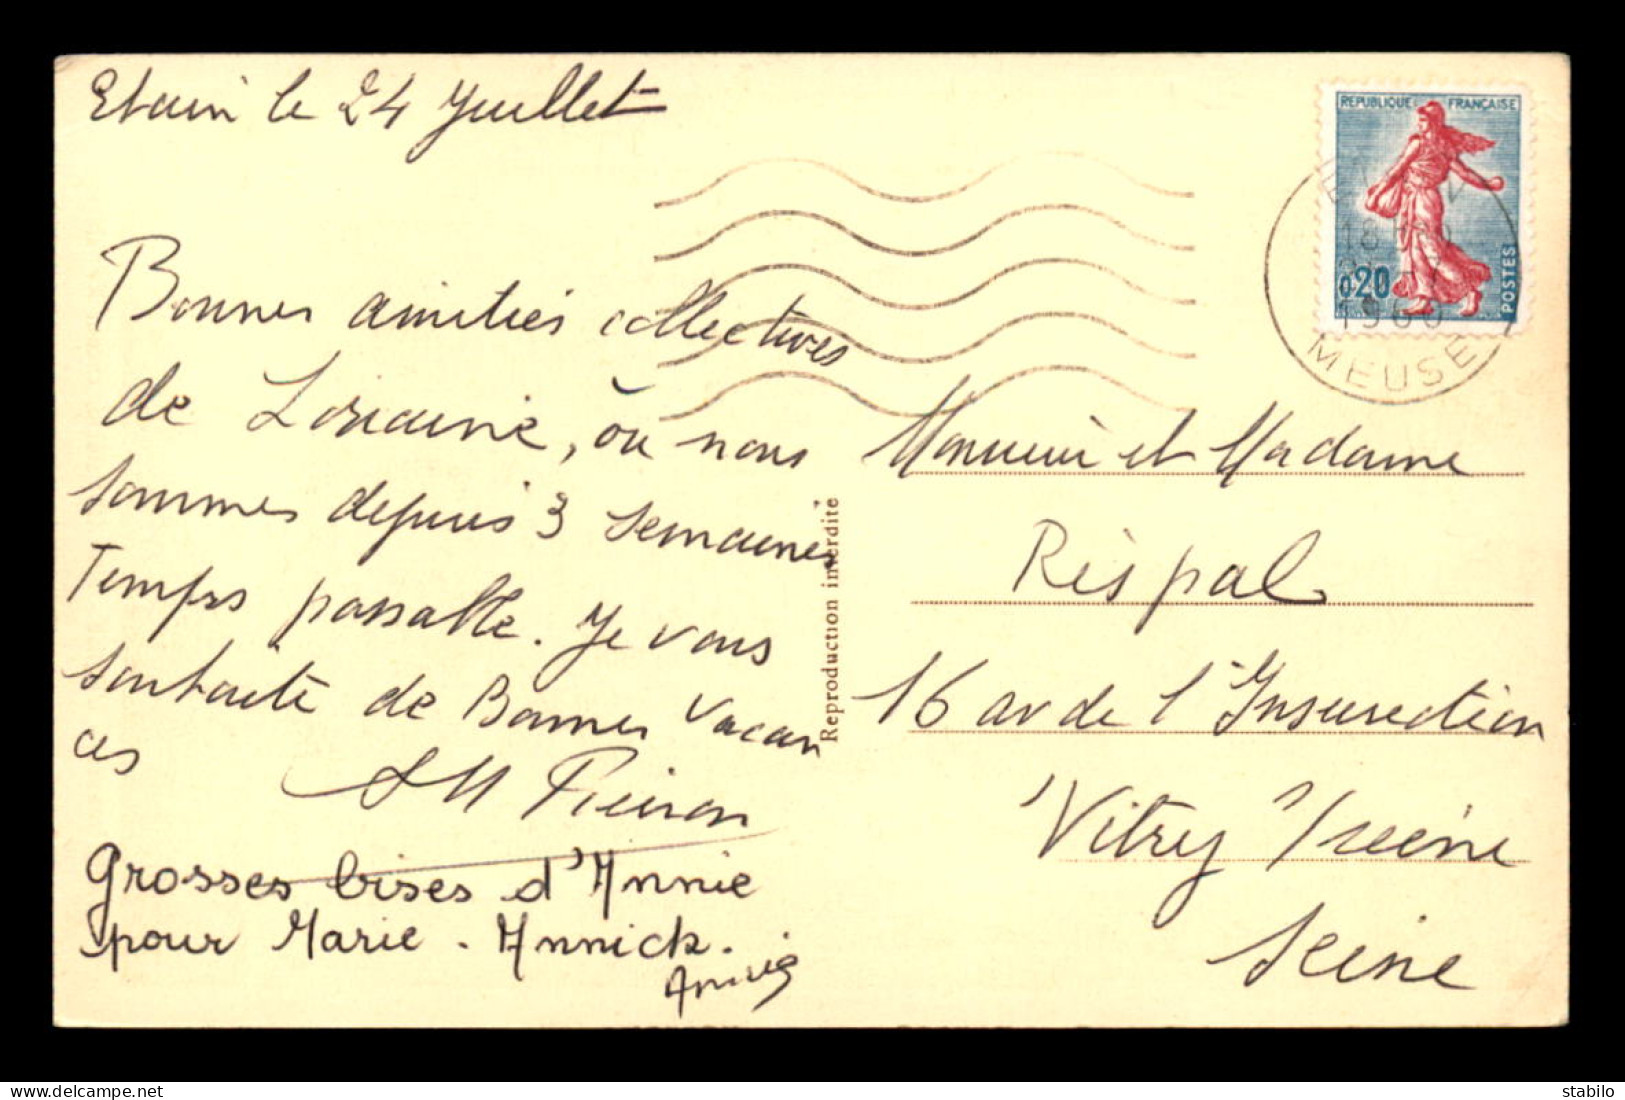 Etain le 24 Juillet
Bonnes amitiés collectives
de Lorraine, où nous
sommes depuis 3 semaines
Temps passable. Je vous
souhaite de Bonnes Vacan
ces
Grosses bises d'Annie
pour Marie-Annick.
Annie
Reproduction interdite
REPUBLIQUE FRANÇAISE
0,20
POSTES
18H
1960
MEUSE
Monsieur et Madame
Réspal
16 av de l'Insurrection
Vitry s/seine
Seine
stabilo